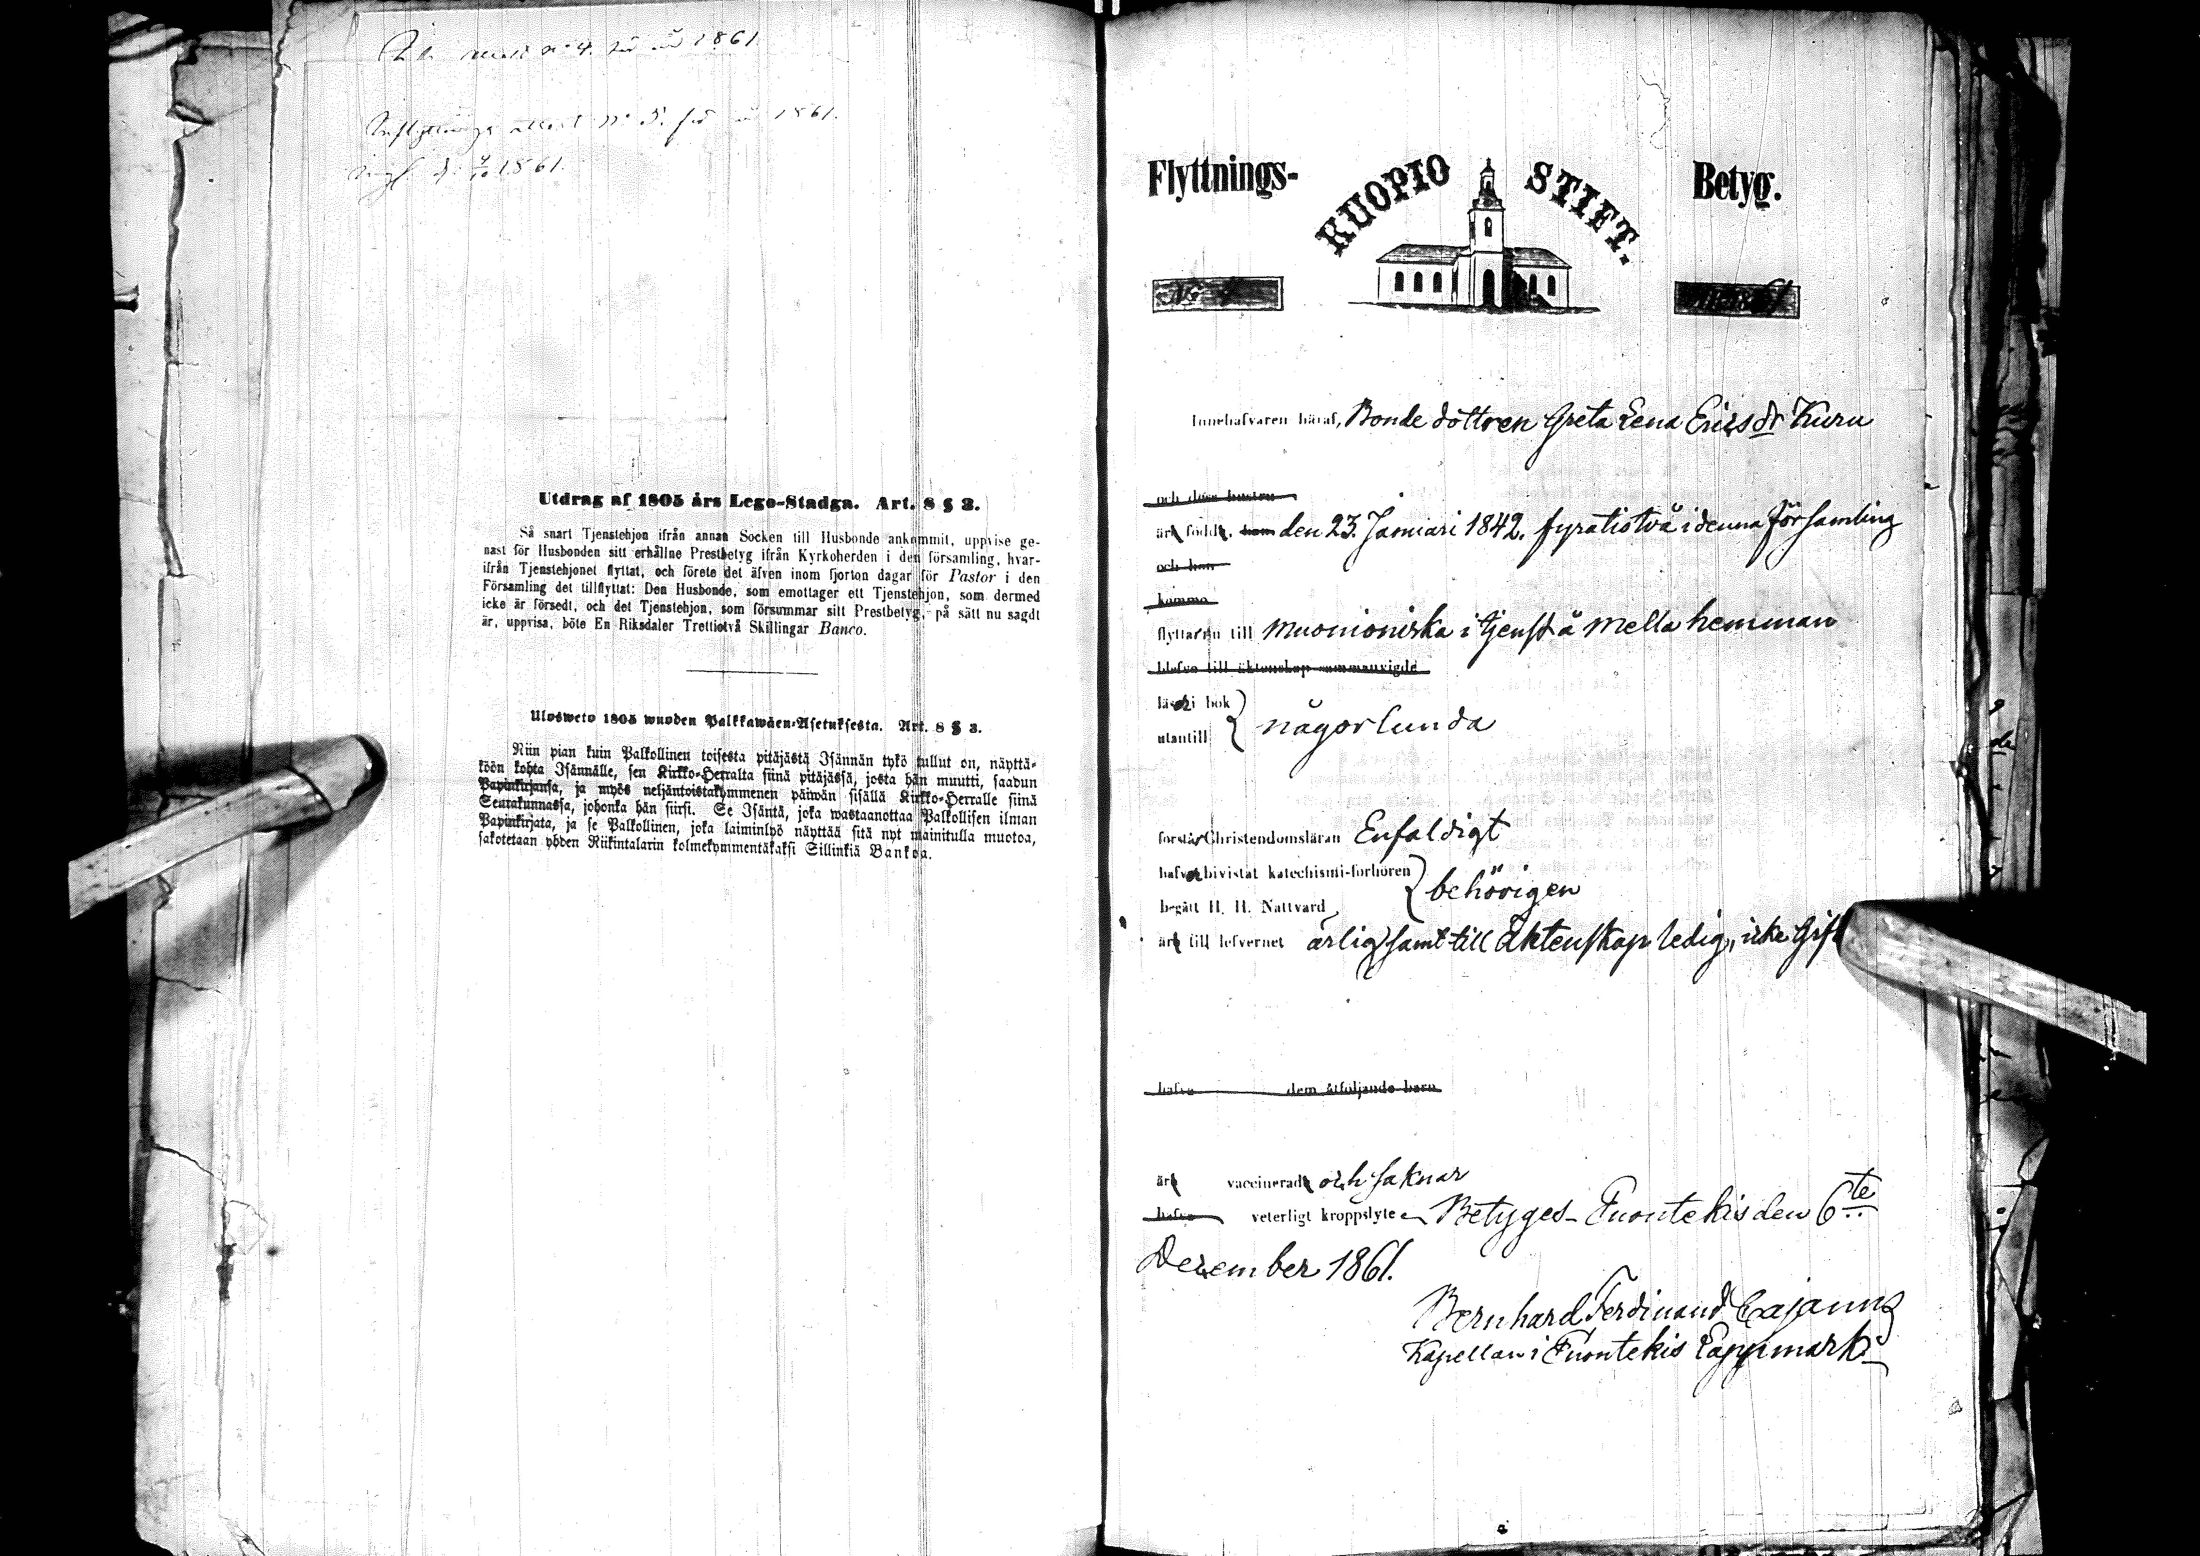 1861.
Inflyttnings attest No 5. för år 1861.
1861.
Utdrag af 1805 års Lego-Stadga. Art. 8 § 3.
Så snart Tjenstehjon ifrån annan Socken till Husbonde ankommit, uppvise ge-
nast för Husbonden sitt erhållne Prestbetyg ifrån Kyrkoherden i den församling, hvar-
ifrån Tjenstehjonet flyttat, och förete det äfven inom fjorton dagar för Pastor i den
Församling det tillflyttat: Den Husbonde, som emottager ett Tjenstehjon, som dermed
icke är försedt, och det Tjenstehjon, som försummar sitt Prestbetyg, på sätt nu sagdt
är, uppvisa, böte En Riksdaler Trettiotvå Skillingar Banco.
Ulosweto 1805 wuoden Palkkawäen-Asetuksesta. Art. 8 § 3.
Niin pian kuin Palkollinen toisesta pitäjästä Isännän tykö tullut on, näyttä-
köön kohta Isännälle, sen Kirkko-Herralta siinä pitäjässä, josta hän muutti, saadun
Papinkirjansa, ja myös neljäntoistakymmenen päiwän sisällä Kirkko-Herralle siinä
Seurakunnassa, johonka hän siirsi. Se Isäntä, joka wastaanottaa Palkollisen ilman
Papinkirjata, ja se Palkollinen, joka laiminlyö näyttää sitä nyt mainitulla muotoa,
sakotetaan yhden Riikintalarin kolmekymmentäkaksi Sillinkiä Bankoa.
Flyttnings- KUOPIO STIFT. Betyg.
No 4
Innehafvaren häraf, Bonde dottren Greta Lena Ericsdr Kuru
och dess hustru
äro födde, hon den 23. Januari 1842. fyratiotvå i denna församling
och hon
komma
flyttar till Muonioniska i tjenst å Mella hemman
blefvo till äktenskap sammanvigde
läser i bok
utantill någorlunda
förstår Christendomsläran Enfaldigt
hafva bivistat katechismi-förhören
begått H. H. Nattvard behörigen
är till lefvernet ärlig samt till Äktenskap ledig, icke Gift
hafva dem åtföljande barn
är vaccinerad och saknar
hafva veterligt kroppslyte Betyges Enontekis den 6te
December 1861.
Bernhard Ferdinand Cajanus
Kapellan i Enontekis Lappmark